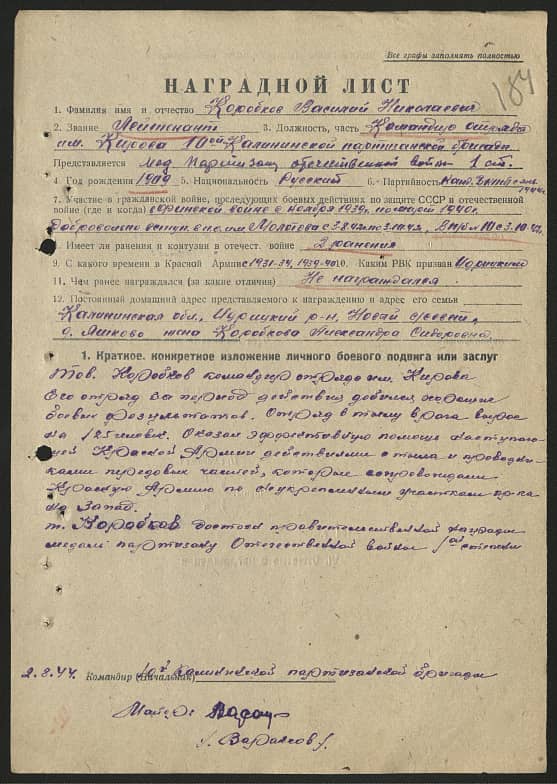 Все графы заполнять полностью
184
НАГРАДНОЙ ЛИСТ
1. Фамилия имя и отчество Коробков Василий Николаевич
2. Звание Лейтенант 3. Должность, часть Командир отряда
им. Кирова 10ой Калининской партизанской бригады
Представляется мед. Партизану отечественной войны 1 ст.
4 Год рождения 1909 5. Национальность Русский 6. Партийность
7. Участие в гражданской войне, последующих боевых действиях по защите СССР и отечественной
войне (где и когда) с финской войне с ноября 1939г. по март 1940г.
Добровольно вступ. в п.о. им с 3.8.42 по 3.10.42, в с 3.10.42
8. Имеет ли ранения и контузии в отечест. войне 2 ранения
9. С какого времени в Красной Армии с 1931-34, 1939-40 10. Каким РВК призван Идрицким
11. Чем ранее награждался (за какие отличия) Не награждался
12. Постоянный домашний адрес представляемого к награждению и адрес его семьи
Калининская обл., Идрицкий р-н,
д. жена Коробкова Александра Сидоровна
1. Краткое, конкретное изложение личного боевого подвига или заслуг
Тов. Коробков командир отряда им. Кирова.
Его отряд за период действия добился хороших
боевых результатов. Отряд в тылу врага вырос
на 125 человек. Оказал эффективную помощь наступаю-
щей Красной Армии действиями с тыла и проводни-
ками передовых частей, которые сопровождали
Красную Армию по укрепленным участкам пр-ка
на Запад.
т. Коробков достоин правительственной награды
медали партизану Отечественной войны 1ой степени
2.8.44. Командир (Начальник) 10й Калининской партизанской бригады
Майор
/Вараксов/